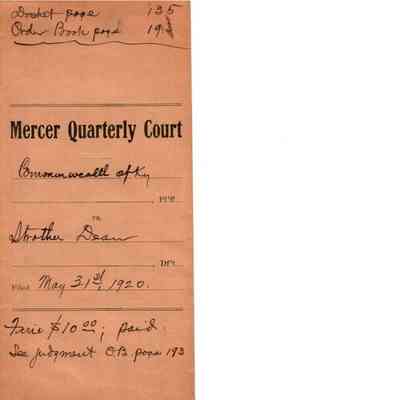 Docket page 135
Order Book page 19
Mercer Quarterly Court
Commonwealth of Ky
PFF.
vs.
Strother Dean
DFT.
Filed May 31st, 1920.
Fine $10.00; paid.
See judgment O.B. page 193